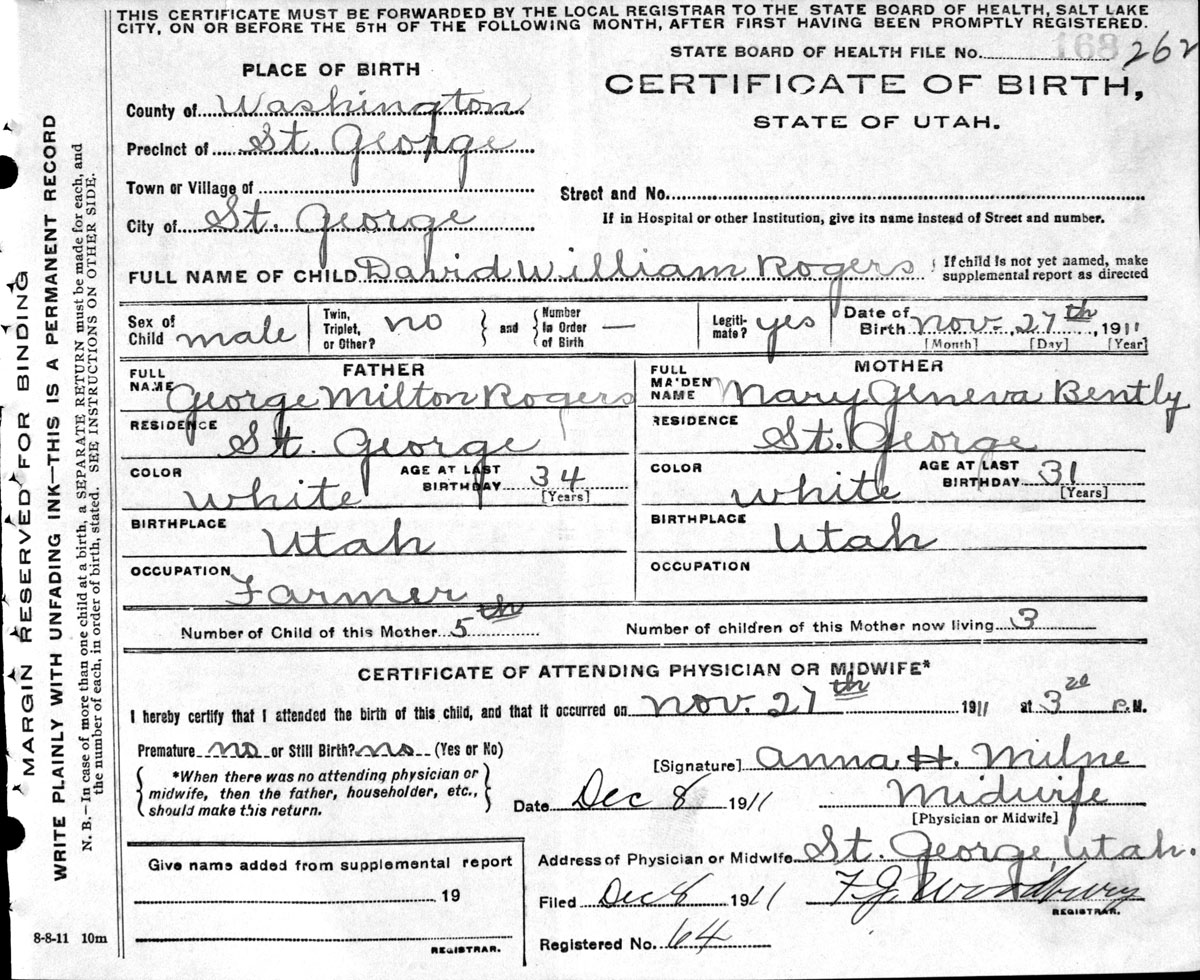 THIS CERTIFICATE MUST BE FORWARDED BY THE LOCAL REGISTRAR TO THE STATE BOARD OF HEALTH, SALT LAKE
CITY, ON OR BEFORE THE 5TH OF THE FOLLOWING MONTH, AFTER FIRST HAVING BEEN PROMPTLY REGISTERED.
STATE BOARD OF HEALTH FILE No. 168 262
PLACE OF BIRTH
CERTIFICATE OF BIRTH,
STATE OF UTAH.
County of Washington
Precinct of St. George
Town or Village of
Street and No.
City of St. George
If in Hospital or other Institution, give its name instead of Street and number.
FULL NAME OF CHILD David William Rogers { If child is not yet named, make
supplemental report as directed
Sex of Child male
Twin, Triplet, or Other? no } and { Number In Order of Birth —
Legitimate? yes
Date of Birth Nov. 27th, 1911
[Month] [Day] [Year]
FATHER
FULL NAME George Milton Rogers
RESIDENCE St. George
COLOR White AGE AT LAST BIRTHDAY 34
[Years]
BIRTHPLACE Utah
OCCUPATION Farmer
MOTHER
FULL MA'DEN NAME Mary Geneva Bently
RESIDENCE St. George
COLOR White AGE AT LAST BIRTHDAY 31
[Years]
BIRTHPLACE Utah
OCCUPATION
Number of Child of this Mother 5th
Number of children of this Mother now living 3
CERTIFICATE OF ATTENDING PHYSICIAN OR MIDWIFE*
I hereby certify that I attended the birth of this child, and that it occurred on Nov. 27th 1911 at 3 P.M.
Premature no or Still Birth? no (Yes or No)
{ *When there was no attending physician or
midwife, then the father, householder, etc.,
should make this return. }
[Signature] Anna H. Milne
Date Dec 8 1911 Midwife
[Physician or Midwife]
Give name added from supplemental report
19
REGISTRAR.
Address of Physician or Midwife St. George, Utah.
Filed Dec 8 1911 F J Woodbury
REGISTRAR.
Registered No. 64
8-8-11 10m
MARGIN RESERVED FOR BINDING
WRITE PLAINLY WITH UNFADING INK—THIS IS A PERMANENT RECORD
N. B.—In case of more than one child at a birth, a SEPARATE RETURN must be made for each, and
the number of each, in order of birth, stated. SEE INSTRUCTIONS ON OTHER SIDE.